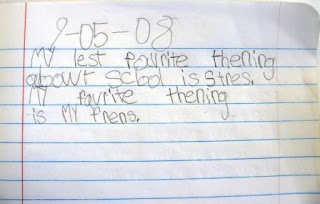 9-05-08
My lest favrite thening
abowt School is Stres.
My favrite thening
is MY frens.